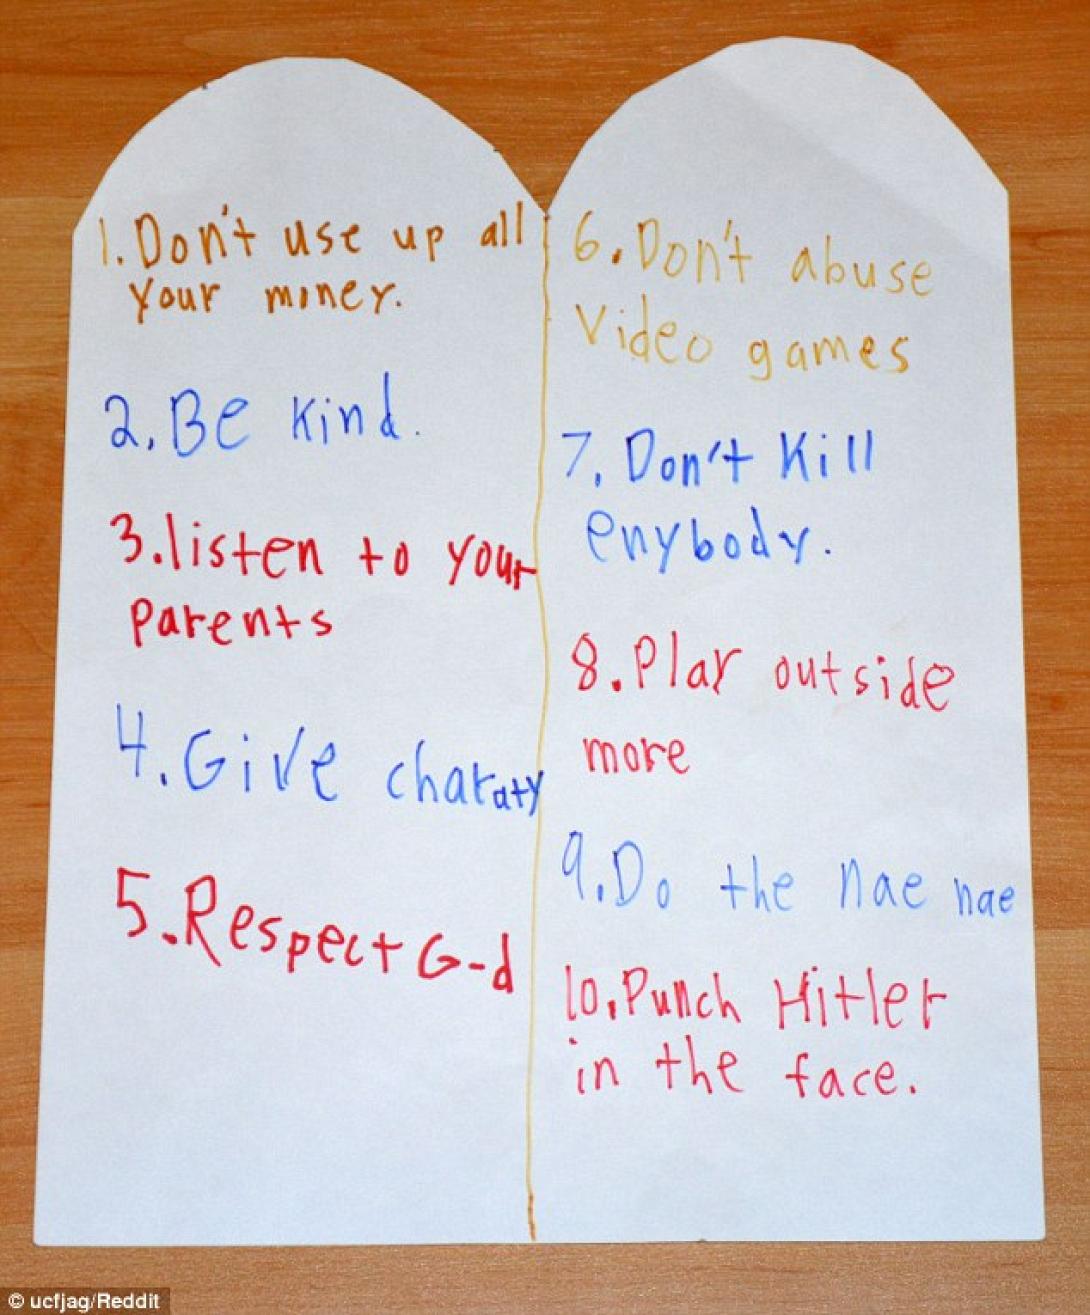 1. Don't use up all
your money.
2. Be kind.
3. listen to your
parents
4. Give charaty
5. Respect G-d
6. Don't abuse
video games
7. Don't kill
enybody.
8. Play outside
more
9. Do the nae nae
10. Punch Hitler
in the face.
© ucfjag/Reddit